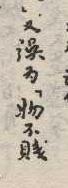 」又误为「物不賤